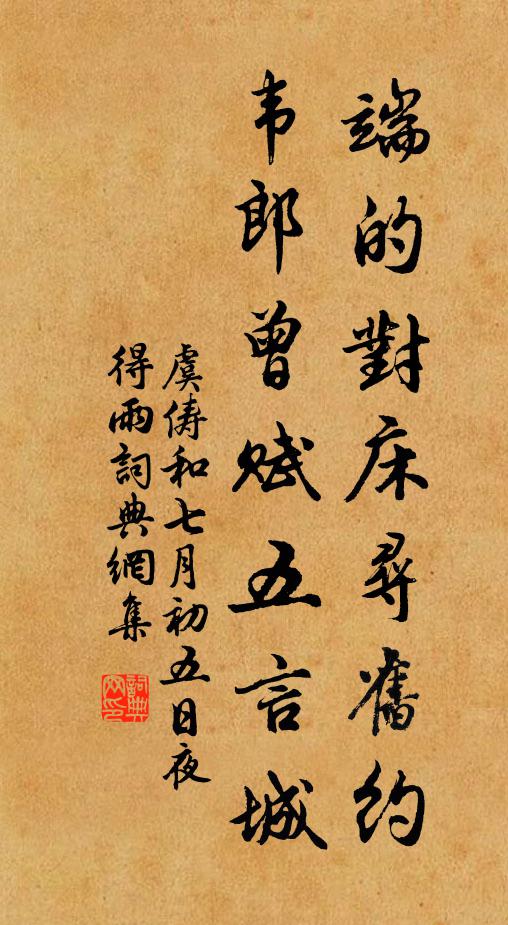 端的對床尋舊約
韦郎曾赋五言城
虞俦和七月初五日夜
得雨詞典網集
詞典网印